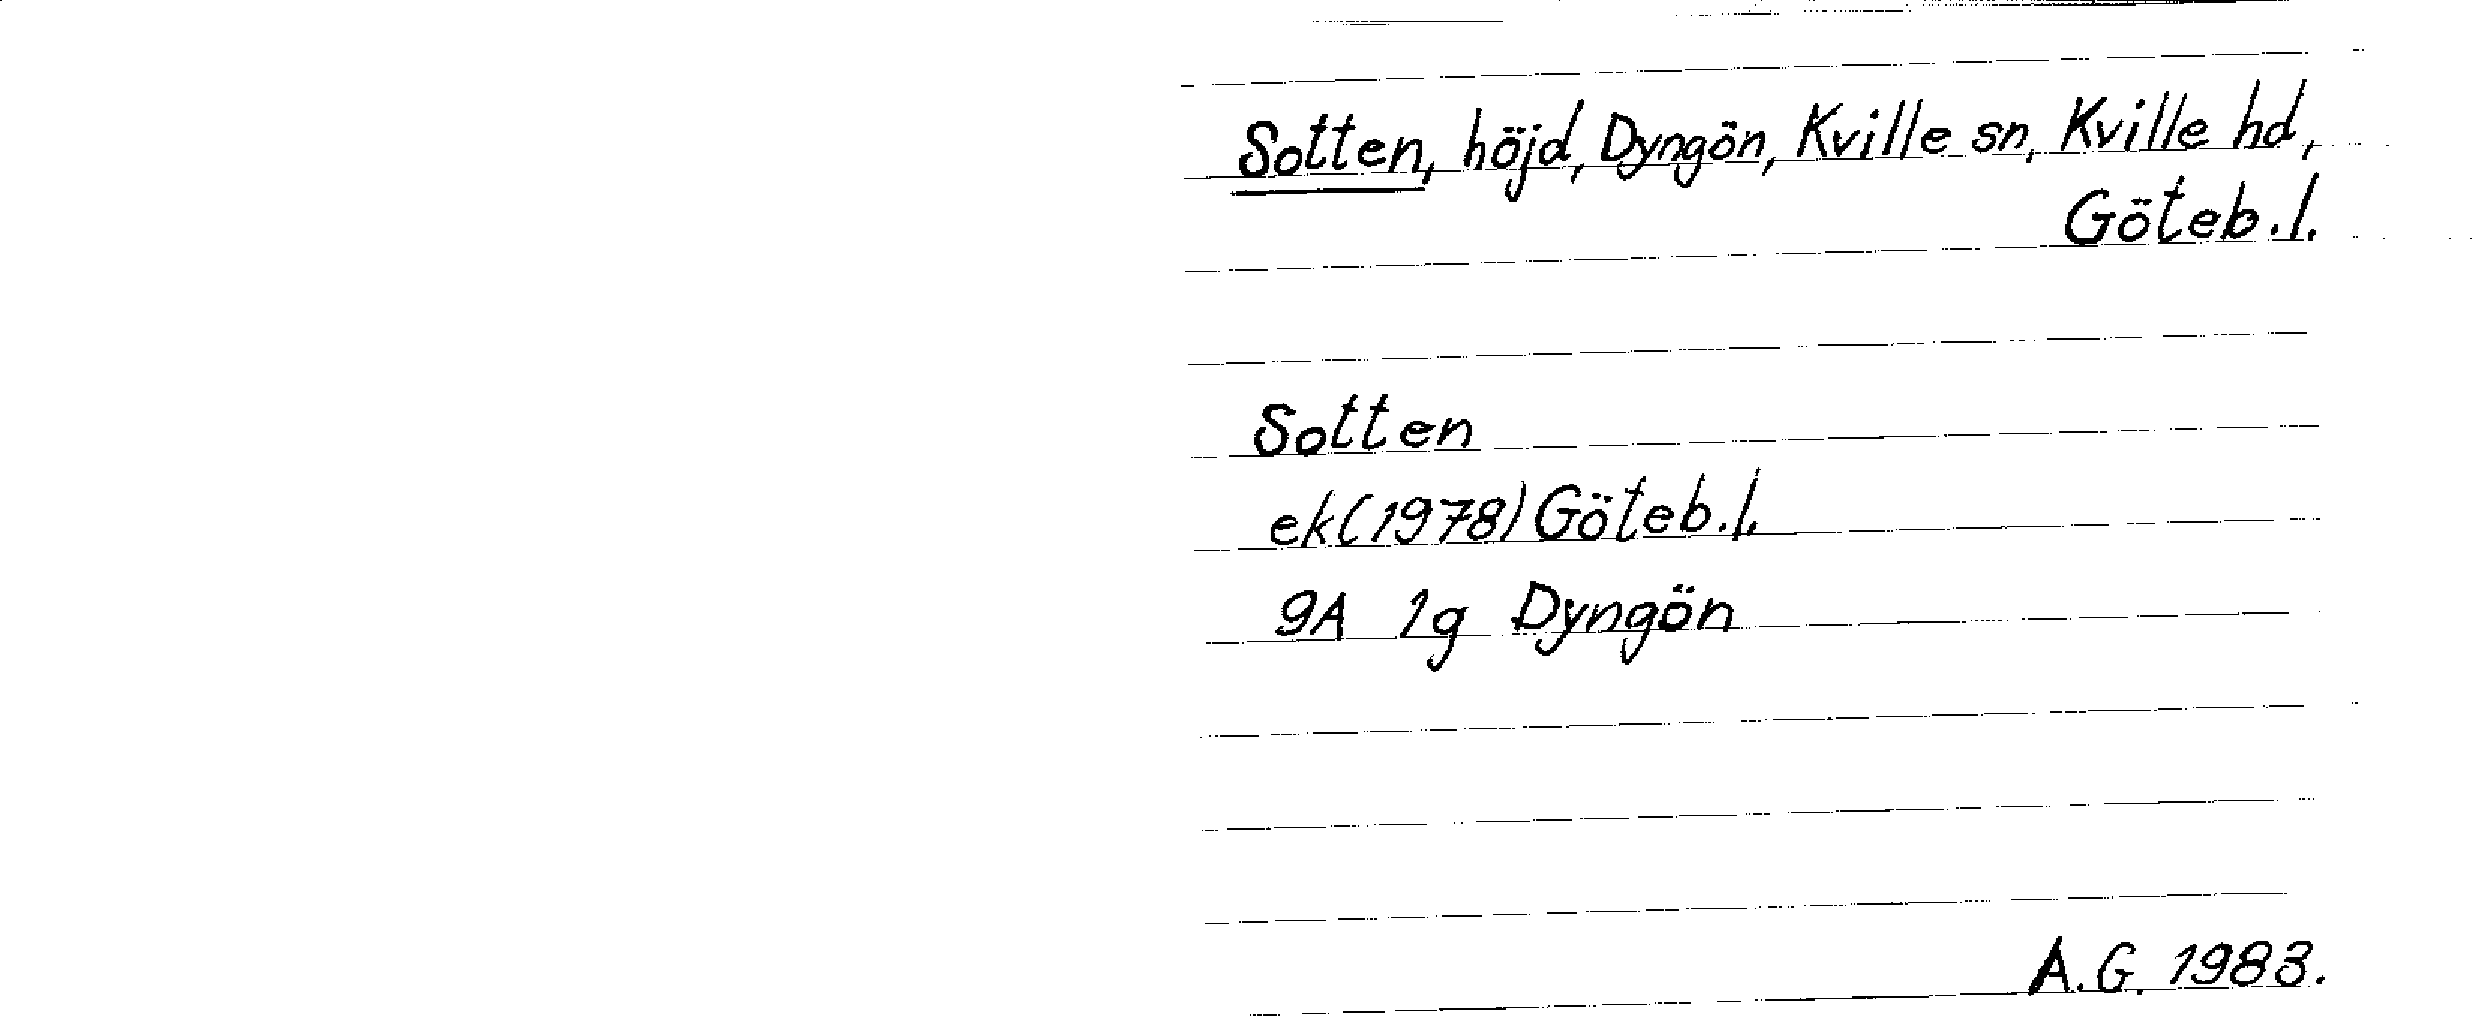 Sotten, höjd, Dyngön, Kville sn, Kville hd,
Göteb.l.
Sotten
ek(1978) Göteb.l.
9A 1g Dyngön
A.G. 1983.